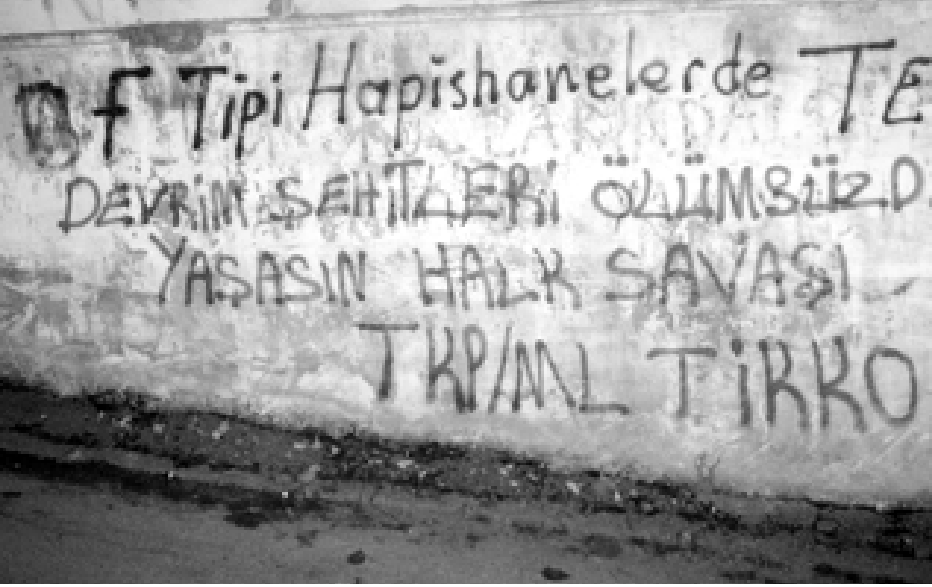 f Tipi Hapishanelerde TE
DEVRİM ŞEHİTLERİ ÖLÜMSÜZD
YAŞASIN HALK SAVAŞI
TKP/ML TİKKO